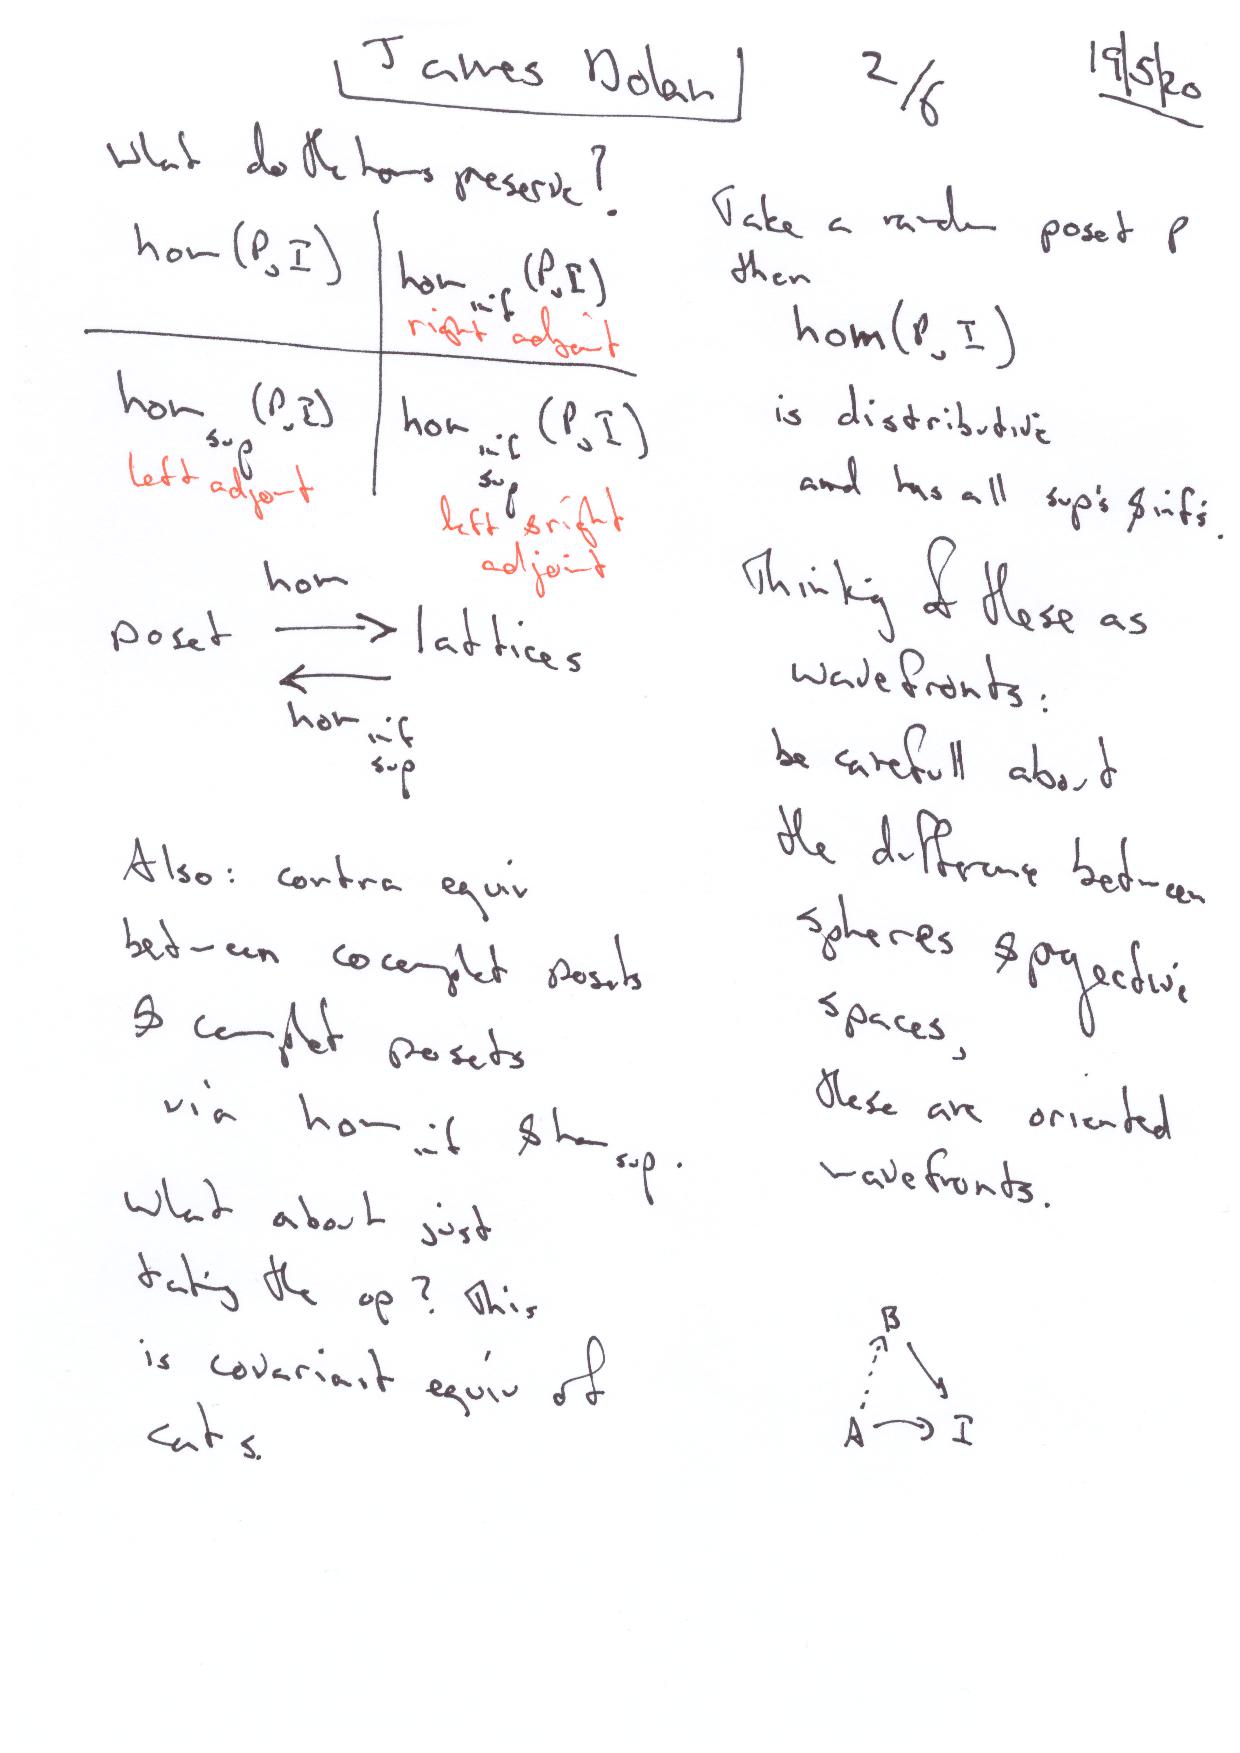 James Dolan
2/6
19/5/20
What do the homs preserve?
hom(P, I)
hom inf (P, I)
right adjoint
hom sup (P, I)
left adjoint
hom inf sup (P, I)
left & right
adjoint
hom
poset → lattices
←
hom inf
sup
Also: contra equiv
between cocomplet posets
& complet posets
via hom inf & hom sup.
What about just
taking the op? This
is covariant equiv of
cats.
Take a random poset P
then
hom(P, I)
is distributive
and has all sup's & inf's.
Thinking of these as
wavefronts:
be carefull about
the difference between
spheres & projective
spaces,
these are oriented
wavefronts.
B
A → I